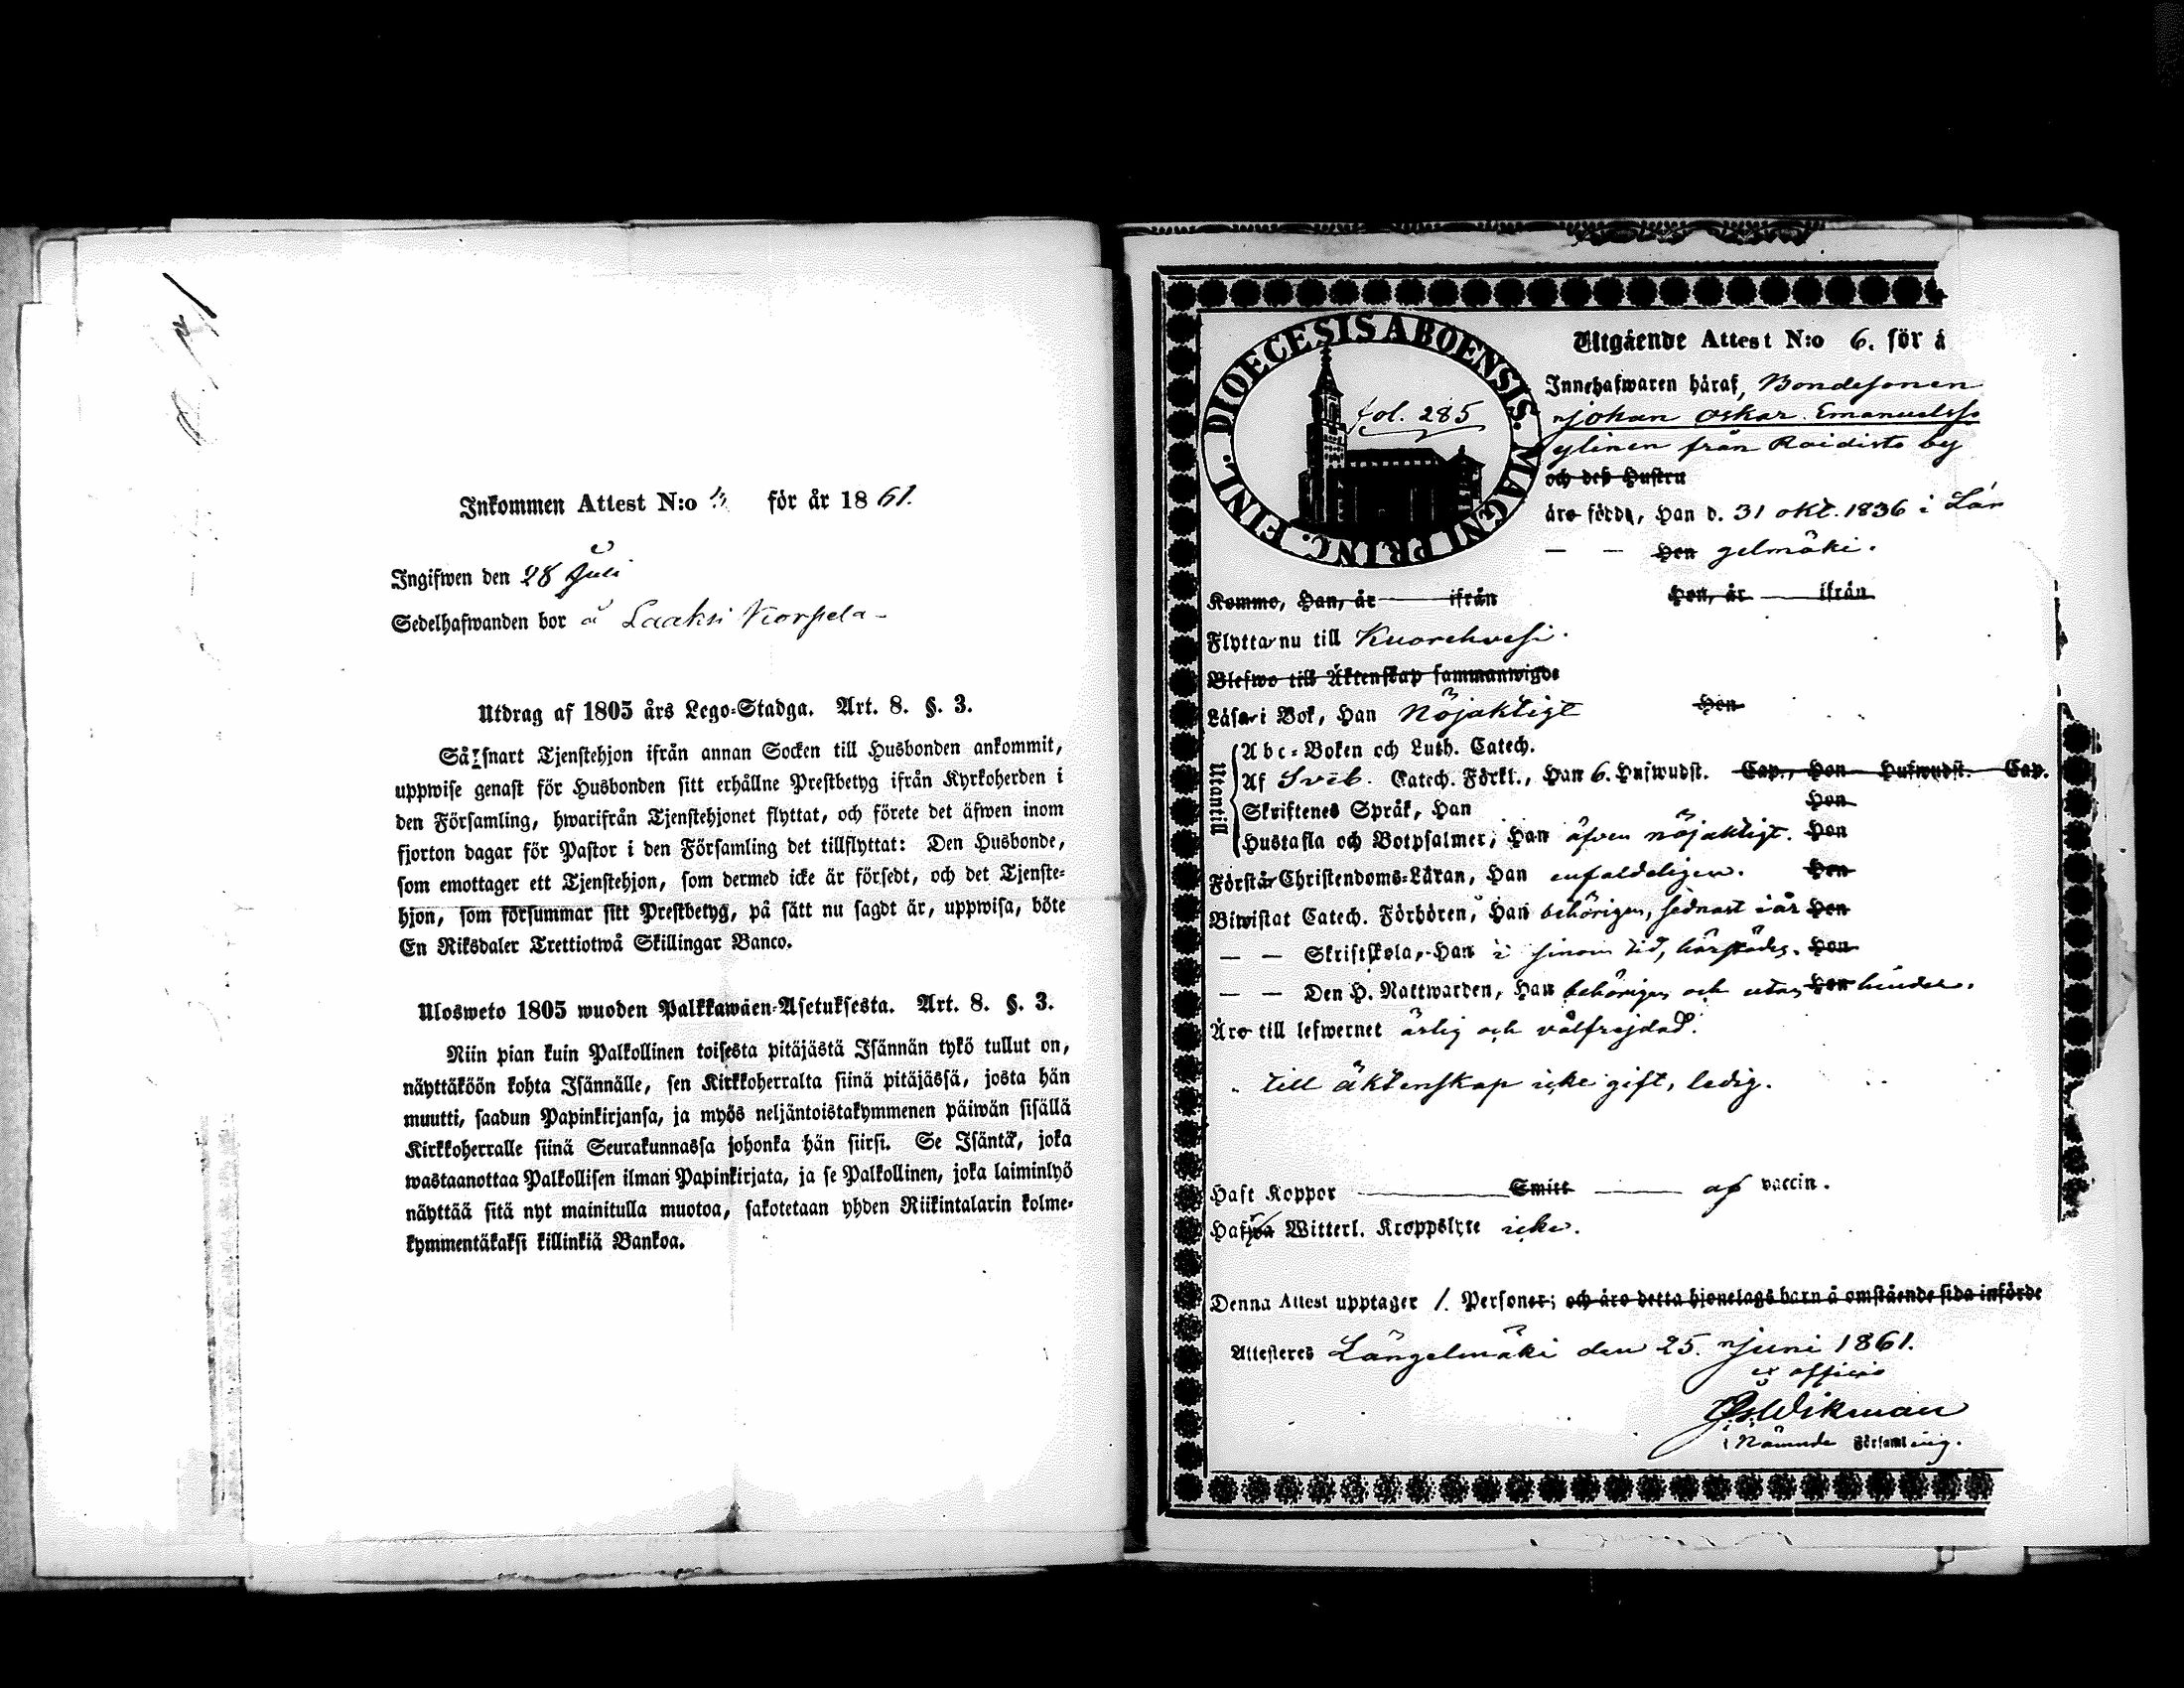 Inkommen Attest N:o för år 1861.
Ingifwen den 28 Juli
Sedelhafwanden bor å Laaksi Korpela
Utdrag af 1805 års Lego-Stadga. Art. 8. §. 3.
Så snart Tjenstehjon ifrån annan Socken till Husbonden ankommit,
uppwise genast för Husbonden sitt erhållne Prestbetyg ifrån Kyrkoherden i
den Församling, hwarifrån Tjenstehjonet flyttat, och förete det äfwen inom
fjorton dagar för Pastor i den Församling det tillflyttat: Den Husbonde,
som emottager ett Tjenstehjon, som dermed icke är försedt, och det Tjenste-
hjon, som försummar sitt Prestbetyg, på sätt nu sagdt är, uppwisa, böte
En Riksdaler Trettiotwå Skillingar Banco.
Ulosweto 1805 wuoden Palkkawäen-Asetuksesta. Art. 8. §. 3.
Niin pian kuin Palkollinen toisesta pitäjästä Isännän tykö tullut on,
näyttäköön kohta Isännälle, sen Kirkkoherralta siinä pitäjässä, josta hän
muutti, saadun Papinkirjansa, ja myös neljäntoistakymmenen päiwän sisällä
Kirkkoherralle siinä Seurakunnassa johonka hän siirsi. Se Isäntä, joka
wastaanottaa Palkollisen ilman Papinkirjata, ja se Palkollinen, joka laiminlyö
näyttää sitä nyt mainitulla muotoa, sakotetaan yhden Riikintalarin kolme-
kymmentäkaksi killinkiä Bankoa.
DIOECESIS ABOENSIS. MAGNI PRINC. FINL.
fol. 285
Utgående Attest N:o 6. för å
Innehafwaren häraf, Bondesonen
Johan Oskar Emanuelss
ylinen från Raidisto by
och deß Hustru
äro födde, Han d. 31 okt. 1836 i Län
— — Hon gelmäki.
Kommo, Han, år ifrån Hon, år ifrån
Flytta nu till Kuorehvesi.
Blefwo till Äktenskap sammanwigde
Läsa i Bok, Han Nöjaktigt Hon
Utantill
Abc-Boken och Luth. Catech.
Af Sveb. Catech. Förkl., Han 6. Hufwudst. Cap., Hon Hufwudst. Cap.
Skriftenes Språk, Han Hon
Hustafla och Botpsalmer, Han äfven nöjaktigt. Hon
Förstår Christendoms-Läran, Han enfaldeligen. Hon
Biwistat Catech. Förhören, Han behörigen, sednast i år Hon
— — Skriftskola, Han i sinom tid, härstädes. Hon
— — Den H. Nattwarden, Han behörigen och utan Hon hinder.
Äro till lefwernet ärlig och välfrejdad.
till äktenskap icke gift, ledig.
Haft Koppor Smitt af vaccin.
Hafwa Witterl. Kroppslyte icke.
Denna Attest upptager 1. Personer; och äro detta hjonelags barn å omstående sida införde
Attesteres Längelmäki den 25. Juni 1861.
ex officio
Wikman
i Nämnde Församling.